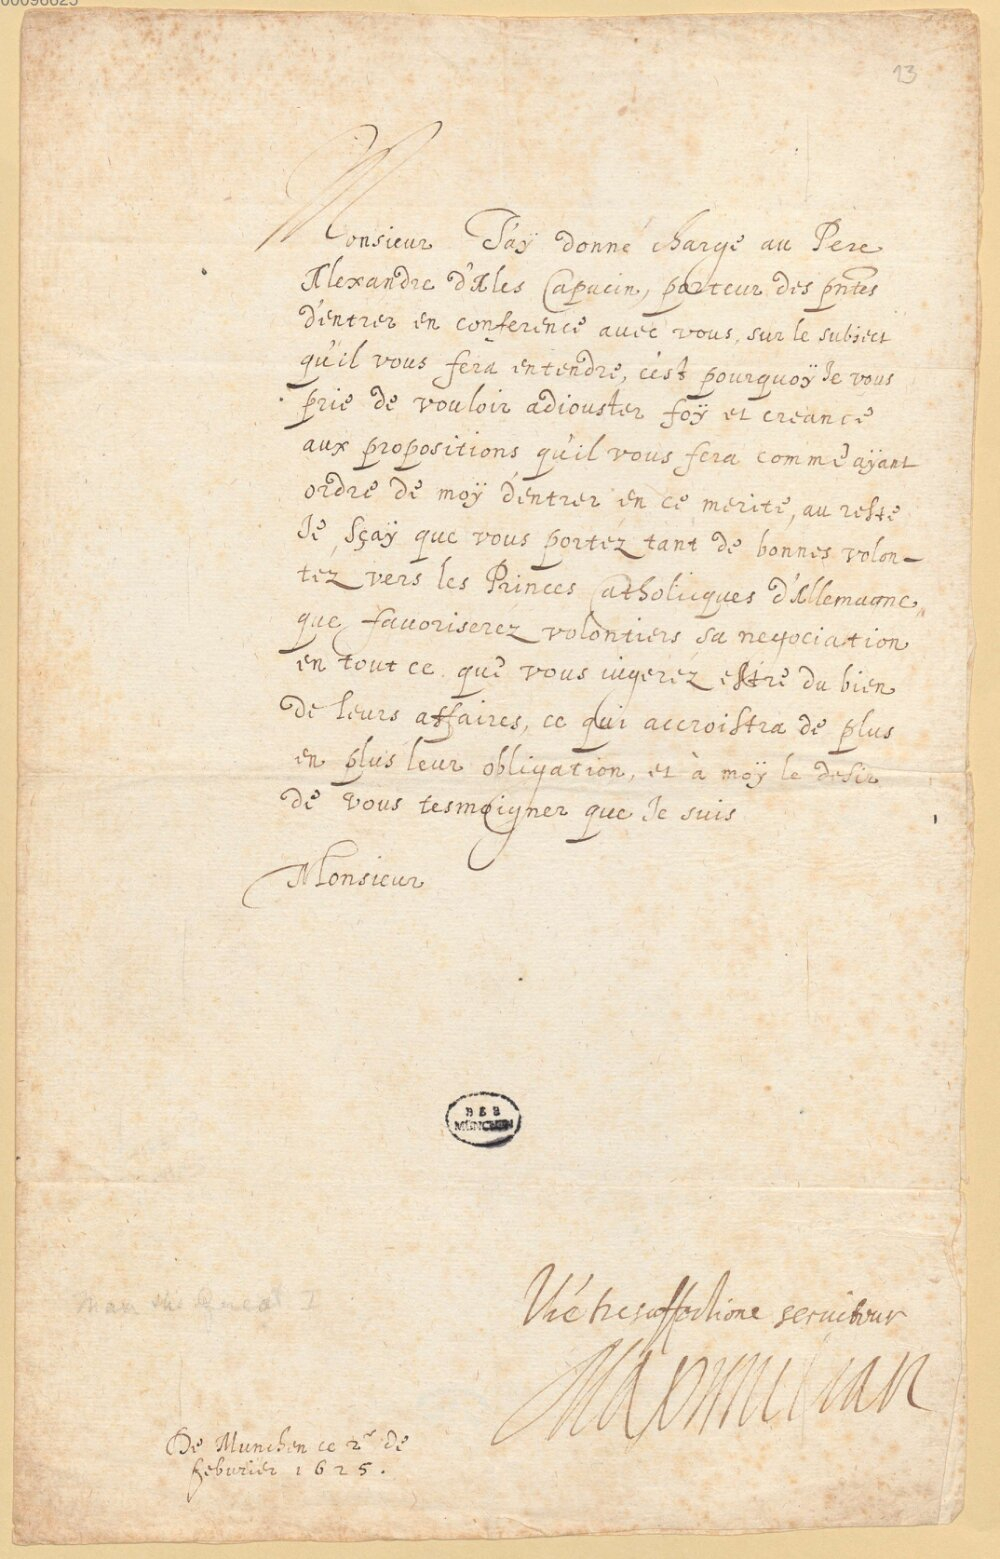 00096625
13
Monsieur J'aÿ donné charge au Pere
Alexandre d'Ales Capucin, porteur des pñtes
d'entrer en conference auec vous, sur le subiect
qu'il vous fera entendre, c'est pourquoÿ Je vous
prie de vouloir adiouster foÿ et creance
aux propositions qu'il vous fera comme aÿant
ordre de moÿ d'entrer en ce merite, au reste
Je sçaÿ que vous portez tant de bonnes volon-
tez vers les Princes Catholicques d'Allemagne,
que fauoriserez volontiers sa negociation
en tout ce que vous iugerez estre du bien
de leurs affaires, ce qui accroistra de plus
en plus leur obligation, et à moÿ le desir
de vous tesmoigner que Je suis
Monsieur
BSB
MÜNCHEN
Vre tresaffectione seruiteur
Maximilian
De Munchen ce 2e de
feburier 1625.